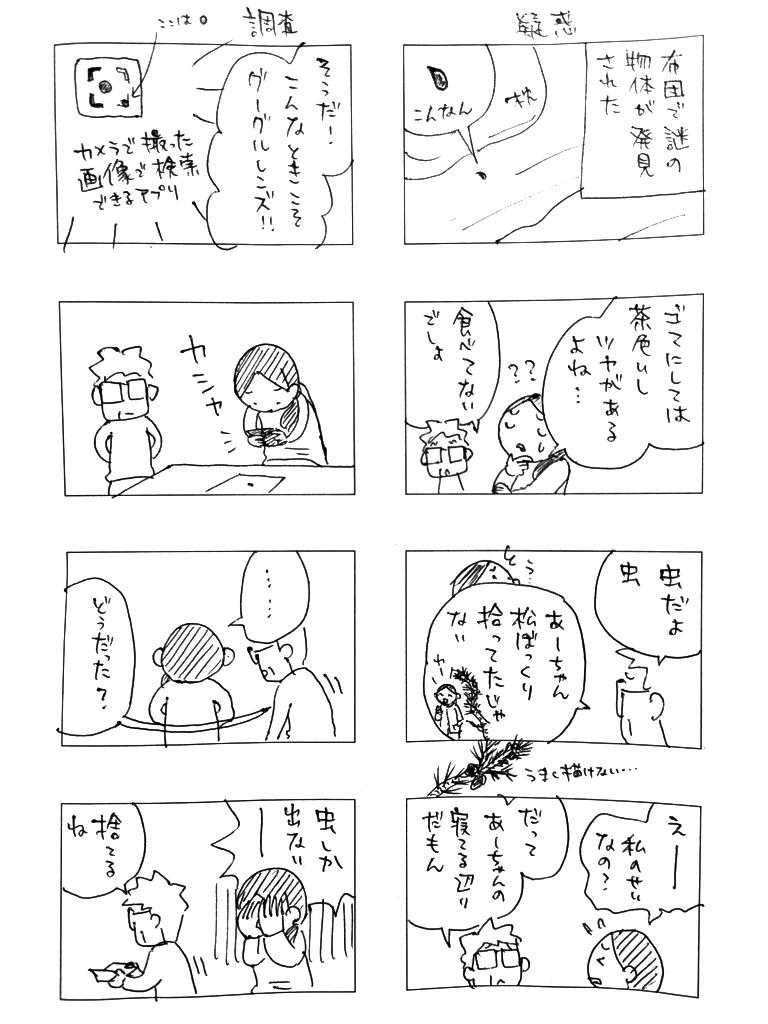 疑惑
布団で謎の
物体が発見
された
こんなん
ゴミにしては
茶色いし
ツヤがある
よね…
??
食べてない
でしょ
虫だよ
虫
とぅ…
あーちゃん
松ぼっくり
拾ってたじゃ
ない
うまく描けない…
えー
私のせい
なの?
だって
あーちゃんの
寝てる辺り
だもん
調査
ここは○
そうだ!
こんなときこそ
グーグルレンズ!!
カメラで撮った
画像で検索
できるアプリ
カシャ
……
どうだった?
虫しか
出ないー
捨てる
ね